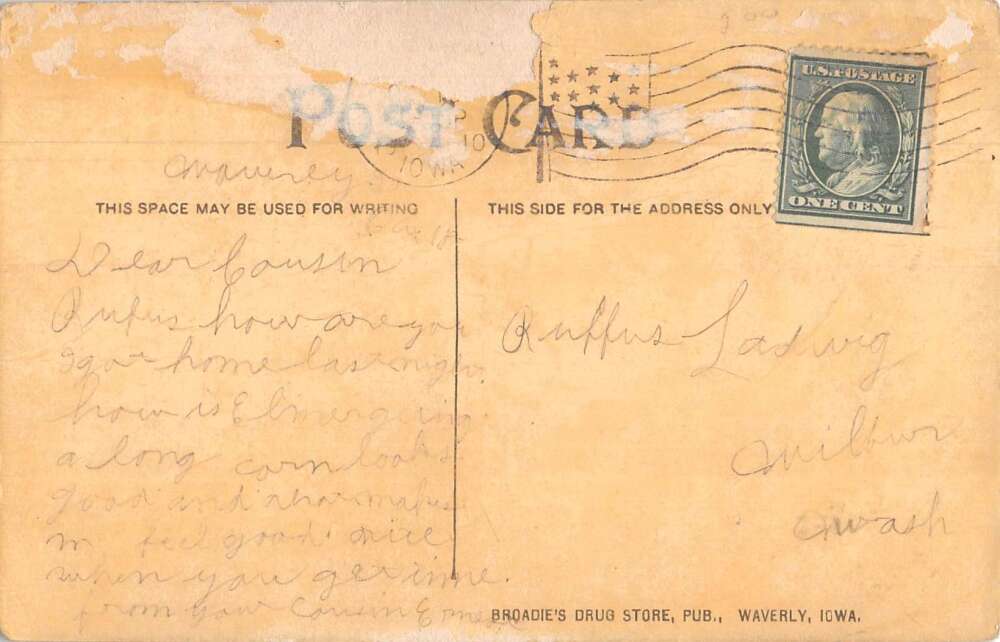 U.S. POSTAGE
POST CARD
10
IOWA
ONE CENT
Waverley
THIS SPACE MAY BE USED FOR WRITING
THIS SIDE FOR THE ADDRESS ONLY
Dear Cousin
Rufus how are you
I got home last night
how is Elmer
a long corn looks
good and makes
feel good
when you get
from your Cousin
Ruffus Ladwig
Wilbur
Wash
BROADIE'S DRUG STORE, PUB., WAVERLY, IOWA.